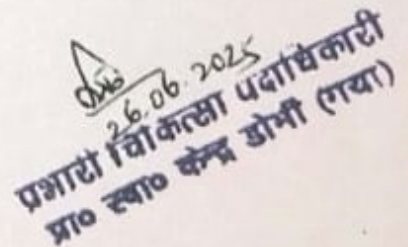 26.06.2025
प्रभारी चिकित्सा पदाधिकारी
प्रा० स्वा० केन्द्र डोभी (गया)